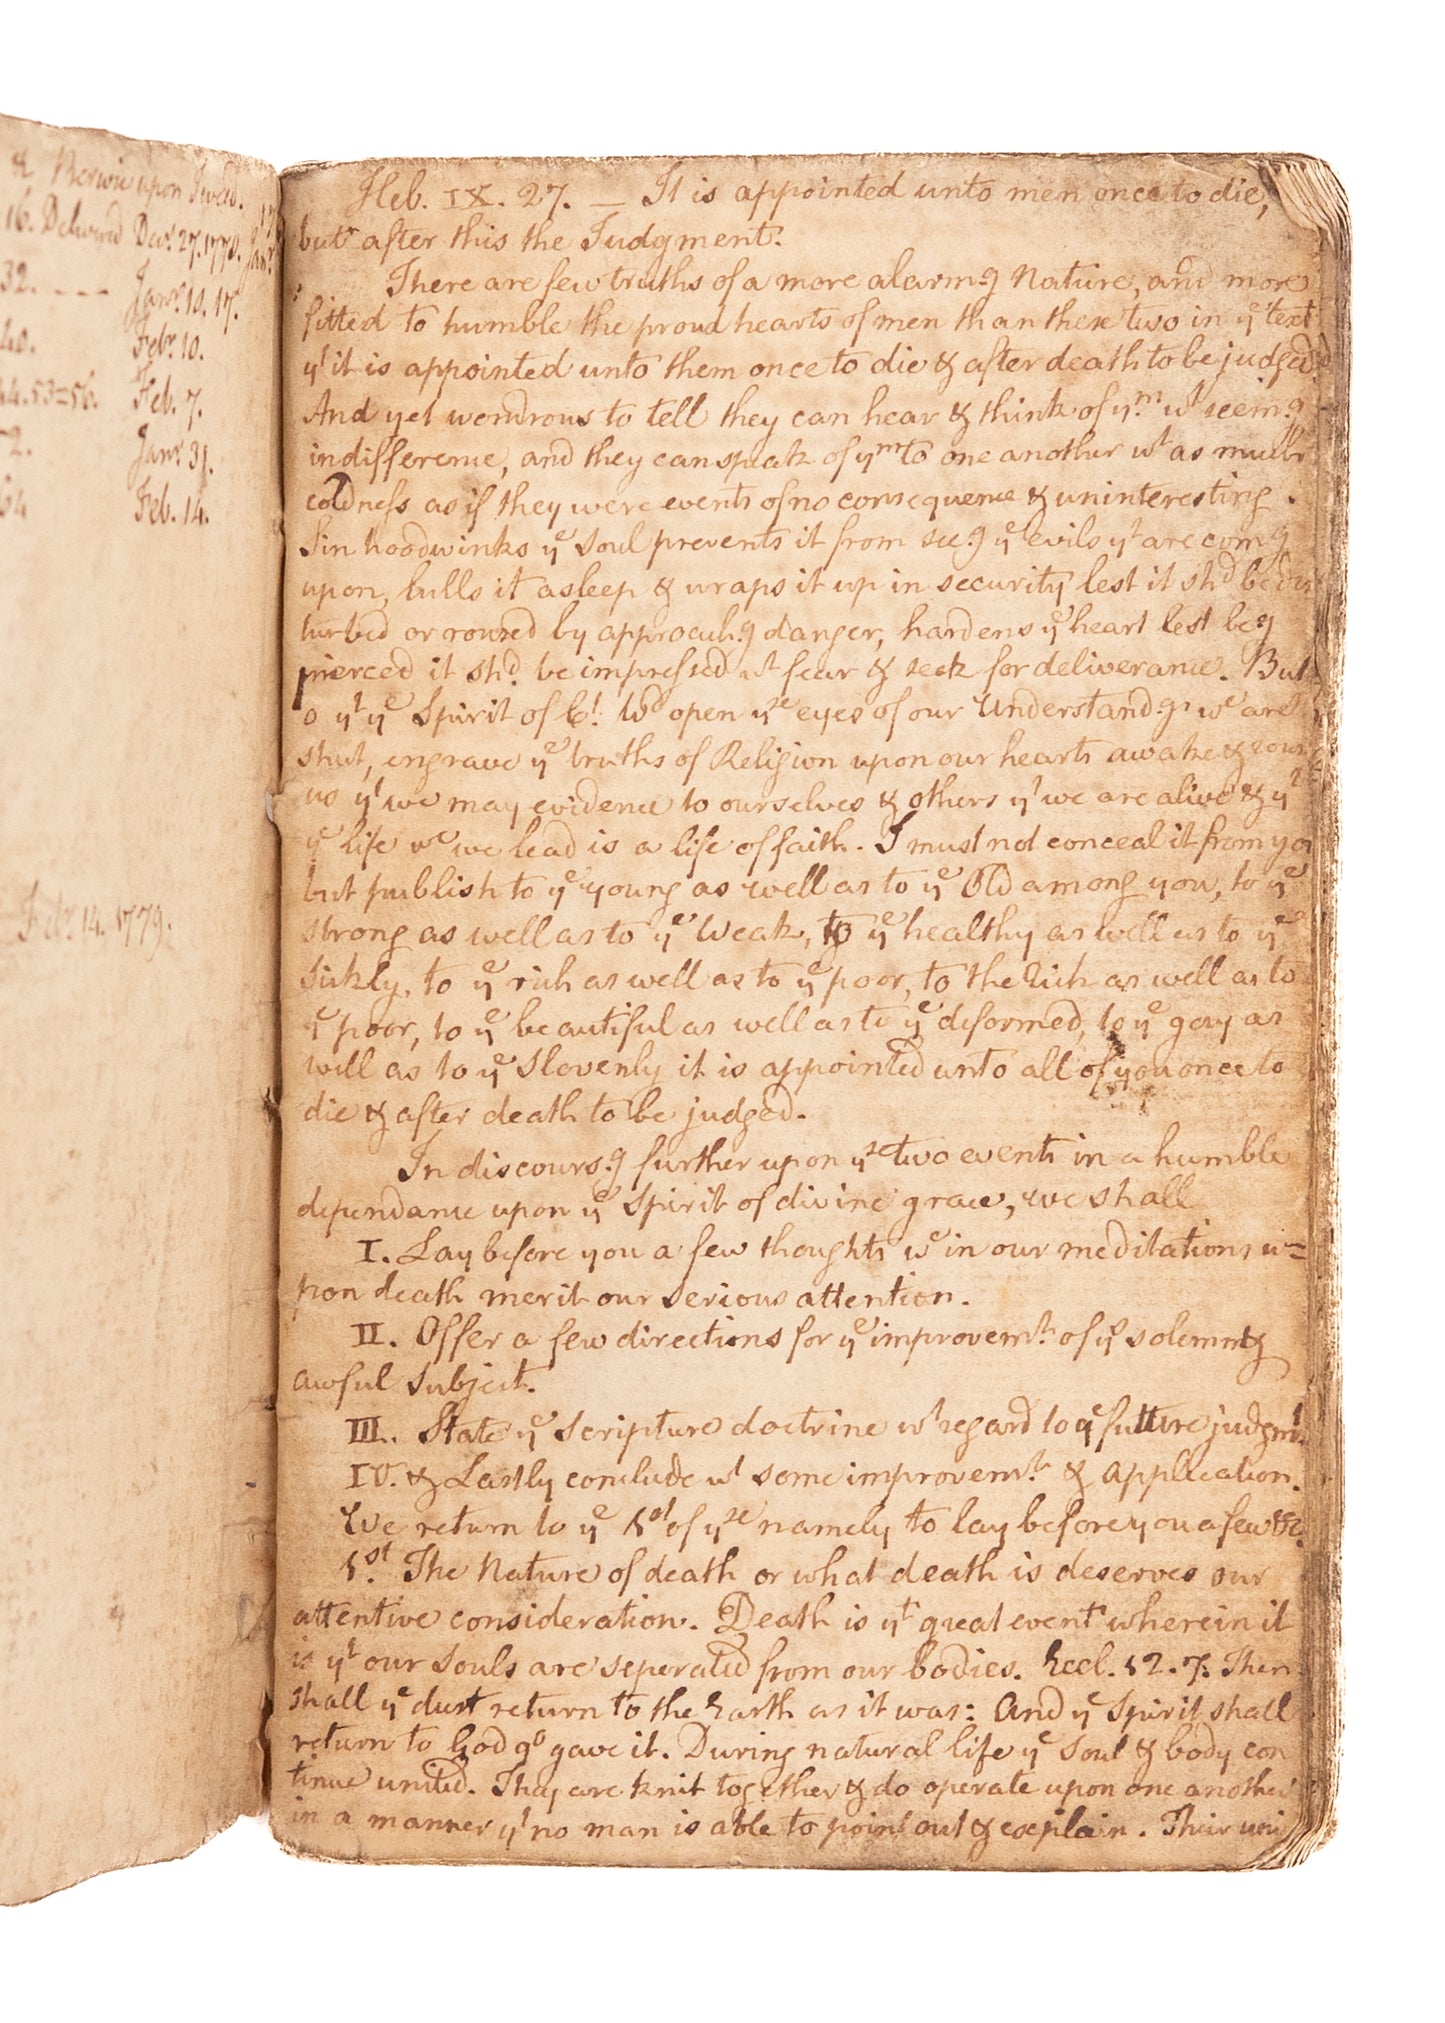 & Berwic upon Tweed.
16. Delivered Decr. 27. 1778. Janr.
32. --- Janr. 10. 17.
40. Febr. 10.
44. 53=56. Feb. 7.
72. Janr. 31.
64 Feb. 14.
Febr. 14. 1779.
Heb. IX. 27. — It is appointed unto men once to die,
but after this the Judgment.
There are few truths of a more alarm.g Nature, and more
fitted to humble the proud hearts of men than these two in ye text
yt it is appointed unto them once to die & after death to be judged.
And yet wondrous to tell they can hear & think of ym wt seem.g
indifference, and they can speak of ym to one another wt as much
coldness as if they were events of no consequence & uninteresting.
Sin hoodwinks ye soul prevents it from see.g ye evils yt are com.g
upon, lulls it asleep & wraps it up in security lest it shd be dis
turbed or roused by approach.g danger, hardens ye heart lest be.g
pierced it shd. be impressed wt fear & seek for deliverance. But
o yt ye Spirit of Ct. wd open yse eyes of our Understand.g wc are
shut, engrave ye truths of Religion upon our hearts awake & rouse
us yt we may evidence to ourselves & others yt we are alive & yt
ye life wc we lead is a life of faith. I must not conceal it from you
but publish to ye young as well as to ye Old among you, to ye
strong as well as to ye Weak, to ye healthy as well as to ye
sickly, to ye rich as well as to ye poor, to the Rich as well as to
ye poor, to ye beautiful as well as to ye deformed, to ye gay as
well as to ye Slovenly it is appointed unto all of you once to
die & after death to be judged.
In discours.g further upon yse two events in a humble
dependance upon ye Spirit of divine grace, we shall
I. Lay before you a few thoughts wc in our meditations u=
pon death merit our serious attention.
II. Offer a few directions for ye improvemt. of ys solemn &
awful subject.
III. State ye Scripture doctrine wt regard to ye future judgmt.
IV. & Lastly conclude wt some improvemt. & application.
We return to ye 1st of yse namely to lay before you a few &c.
1st. The Nature of death or what death is deserves our
attentive consideration. Death is yt great event wherein it
is yt our Souls are seperated from our bodies. Eccl. 12. 7. Then
shall ye dust return to the Earth as it was: And ye Spirit shall
return to God qo gave it. During natural life ye Soul & body con
tinue united. They are knit together & do operate upon one another
in a manner yt no man is able to point out & explain. Their uni